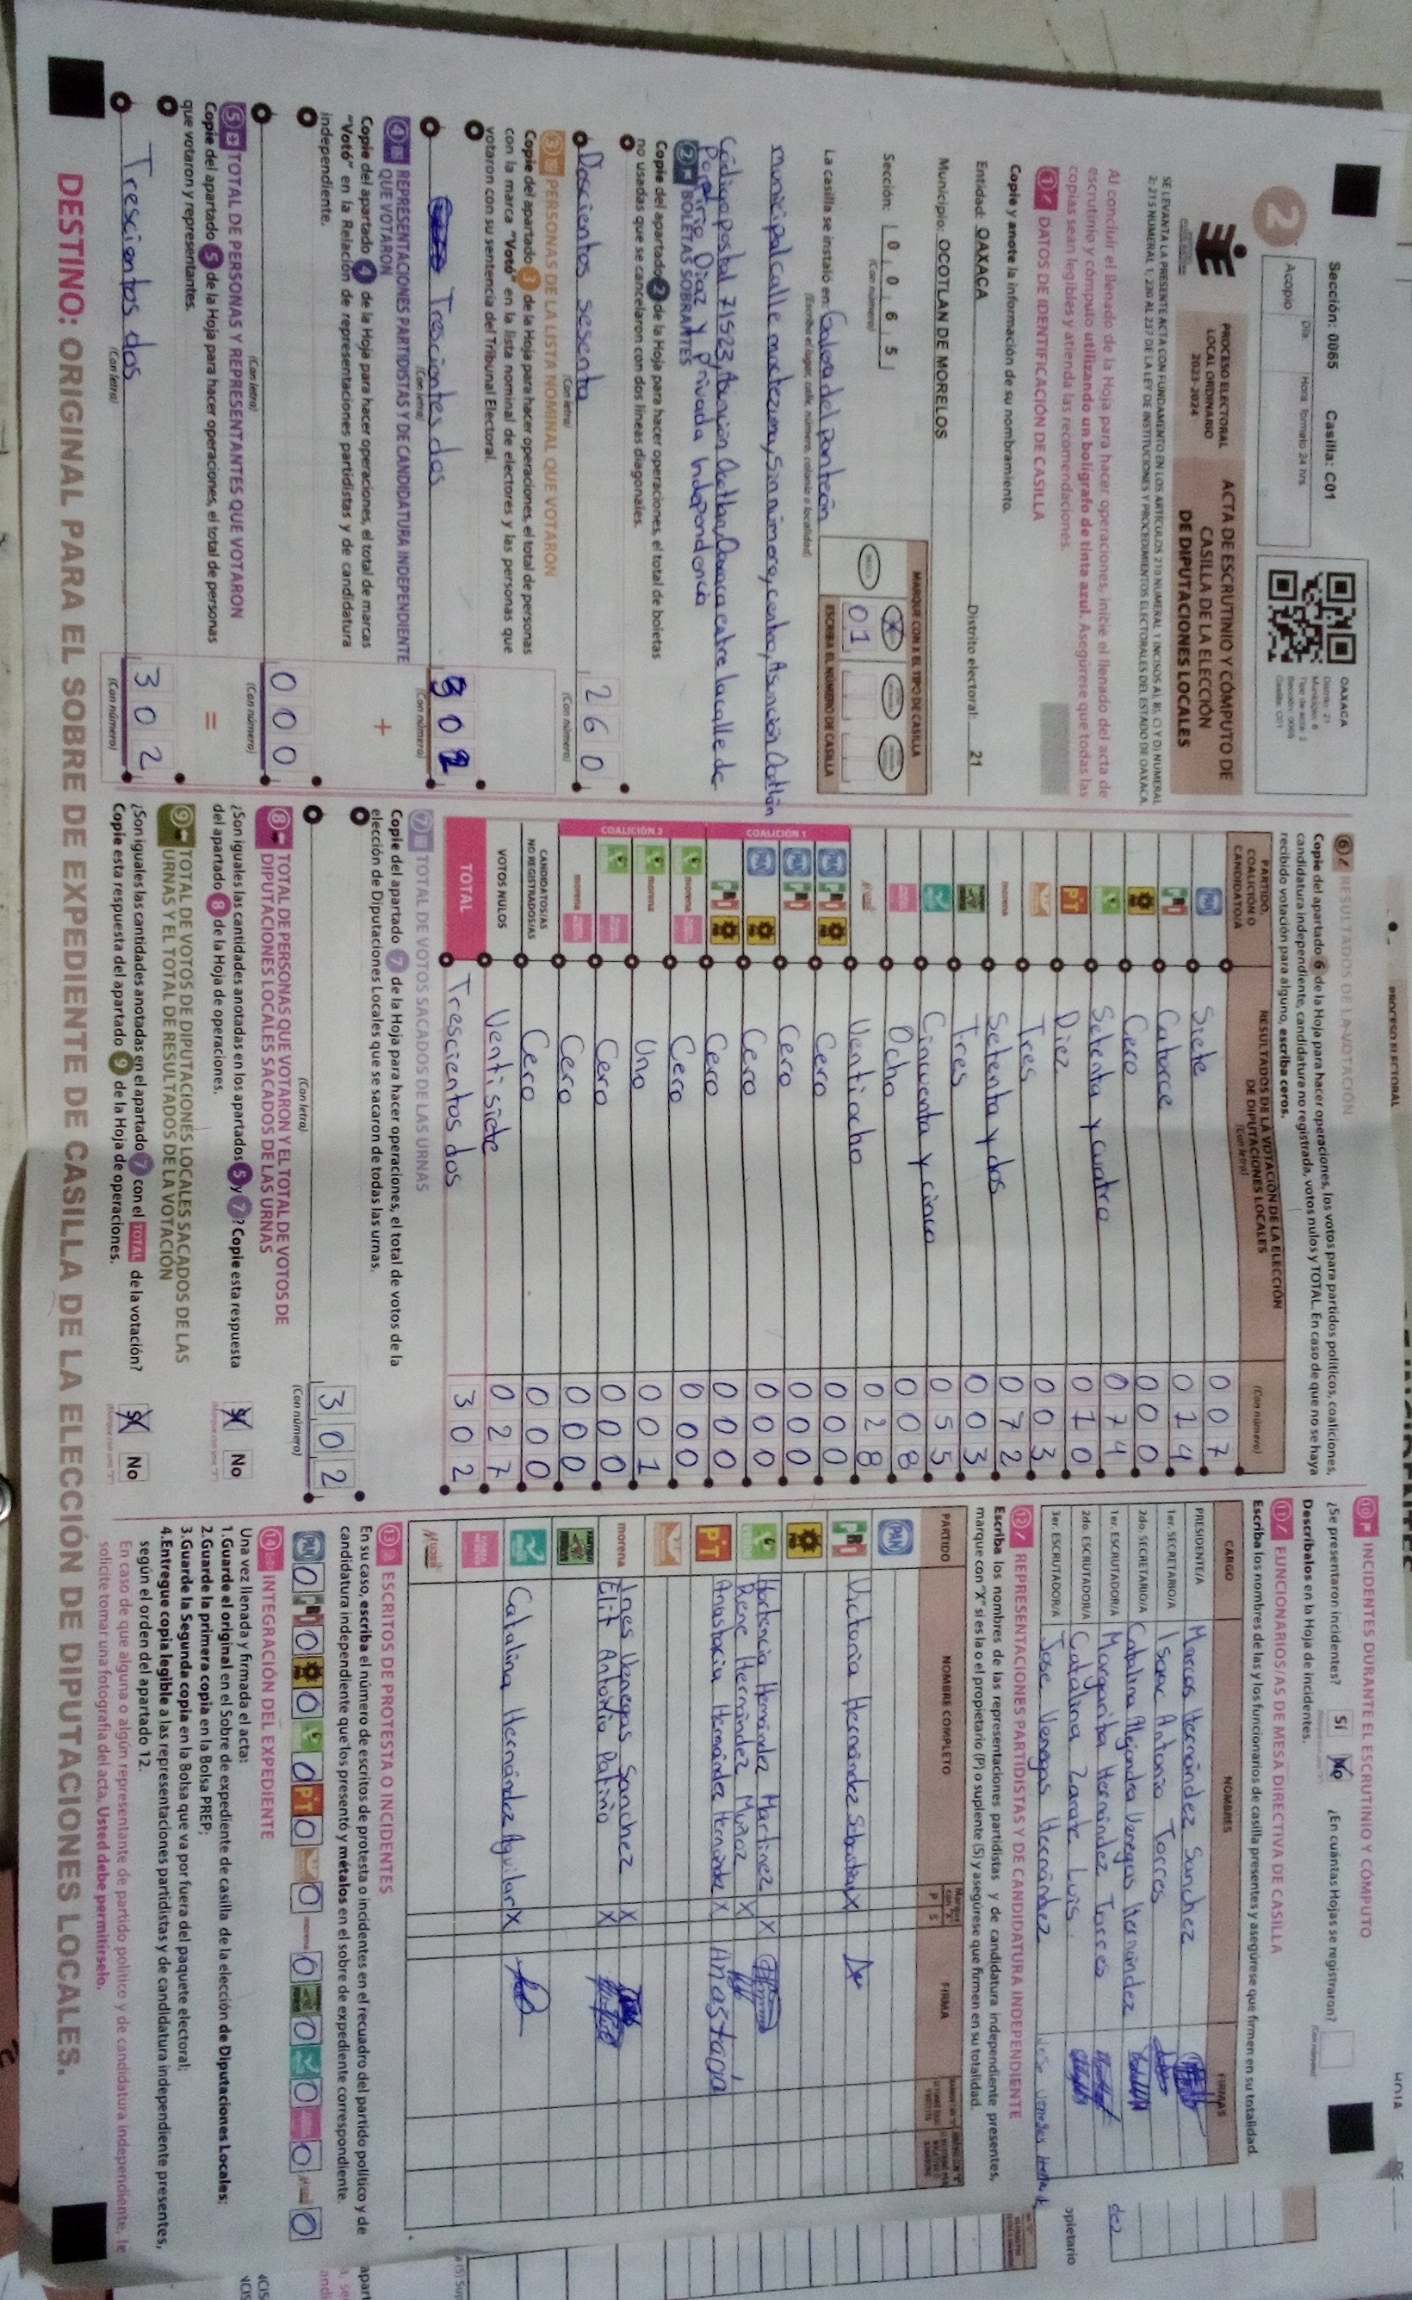 Sección: 0065 Casilla: C01
2
Acopio
Día
Hora formato 24 hrs.
OAXACA
PROCESO ELECTORAL
LOCAL ORDINARIO
2023-2024
ACTA DE ESCRUTINIO Y CÓMPUTO DE
CASILLA DE LA ELECCIÓN
DE DIPUTACIONES LOCALES
Al concluir el llenado de la Hoja para hacer operaciones, inicie el llenado del acta de
escrutinio y cómputo utilizando un bolígrafo de tinta azul. Asegúrese que todas las
copias sean legibles y atienda las recomendaciones.
1 DATOS DE IDENTIFICACIÓN DE CASILLA
Copie y anote la información de su nombramiento.
Entidad: OAXACA Distrito electoral: 21
Municipio: OCOTLAN DE MORELOS
Sección: 0 0 6 5
(Con número)
MARQUE CON X EL TIPO DE CASILLA
ESCRIBA EL NÚMERO DE CASILLA
0 1
La casilla se instaló en: Galera del panteón
(Escriba el lugar, calle, número, colonia o localidad)
municipal calle moctezuma, sin número, centro, Asunción Ocotlán
Código postal 71523, Asunción Ocotlán, Oaxaca entre la calle de
Porfirio Díaz y privada Independencia
2 BOLETAS SOBRANTES
Copie del apartado 2 de la Hoja para hacer operaciones, el total de boletas
no usadas que se cancelaron con dos líneas diagonales.
Doscientos sesenta 2 6 0
(Con letra) (Con número)
3 PERSONAS DE LA LISTA NOMINAL QUE VOTARON
Copie del apartado 3 de la Hoja para hacer operaciones, el total de personas
con la marca "Votó" en la lista nominal de electores y las personas que
votaron con su sentencia del Tribunal Electoral.
Trescientes dos 3 0 2
(Con letra) (Con número)
4 REPRESENTACIONES PARTIDISTAS Y DE CANDIDATURA INDEPENDIENTE
QUE VOTARON
+
Copie del apartado 4 de la Hoja para hacer operaciones, el total de marcas
"Votó" en la Relación de representaciones partidistas y de candidatura
independiente.
0 0 0
(Con letra) (Con número)
5 TOTAL DE PERSONAS Y REPRESENTANTES QUE VOTARON
=
Copie del apartado 5 de la Hoja para hacer operaciones, el total de personas
que votaron y representantes.
Trescientos dos 3 0 2
(Con letra) (Con número)
6 RESULTADOS DE LA VOTACIÓN
Copie del apartado 6 de la Hoja para hacer operaciones, los votos para partidos políticos, coaliciones,
candidatura independiente, candidatura no registrada, votos nulos y TOTAL. En caso de que no se haya
recibido votación para alguno, escriba ceros.
PARTIDO, COALICIÓN O CANDIDATO/A
RESULTADOS DE LA VOTACIÓN DE LA ELECCIÓN DE DIPUTACIONES LOCALES
(Con letra) (Con número)
PAN Siete 0 0 7
PRI Catorce 0 1 4
PRD Cero 0 0 0
Setenta y cuatro 0 7 4
PT Diez 0 1 0
Tres 0 0 3
morena Setenta y dos 0 7 2
Tres 0 0 3
Cincuenta y cinco 0 5 5
Ocho 0 0 8
Ventiocho 0 2 8
COALICIÓN 1
PAN PRI PRD Cero 0 0 0
PAN PRI Cero 0 0 0
PAN PRD Cero 0 0 0
PRI PRD Cero 0 0 0
COALICIÓN 2
morena Cero 0 0 0
morena Uno 0 0 1
Cero 0 0 0
morena Cero 0 0 0
CANDIDATOS/AS NO REGISTRADOS/AS Cero 0 0 0
VOTOS NULOS Ventisiete 0 2 7
TOTAL Trescientos dos 3 0 2
7 TOTAL DE VOTOS SACADOS DE LAS URNAS
Copie del apartado 7 de la Hoja para hacer operaciones, el total de votos de la
elección de Diputaciones Locales que se sacaron de todas las urnas.
3 0 2
(Con letra) (Con número)
8 TOTAL DE PERSONAS QUE VOTARON Y EL TOTAL DE VOTOS DE
DIPUTACIONES LOCALES SACADOS DE LAS URNAS
¿Son iguales las cantidades anotadas en los apartados 5 y 7? Copie esta respuesta
del apartado 8 de la Hoja de operaciones.
Sí No
9 TOTAL DE VOTOS DE DIPUTACIONES LOCALES SACADOS DE LAS
URNAS Y EL TOTAL DE RESULTADOS DE LA VOTACIÓN
¿Son iguales las cantidades anotadas en el apartado 7 con el TOTAL de la votación?
Copie esta respuesta del apartado 9 de la Hoja de operaciones.
Sí No
10 INCIDENTES DURANTE EL ESCRUTINIO Y CÓMPUTO
¿Se presentaron incidentes? Sí No ¿En cuántas Hojas se registraron?
Descríbalos en la Hoja de incidentes.
11 FUNCIONARIOS/AS DE MESA DIRECTIVA DE CASILLA
Escriba los nombres de las y los funcionarios de casilla presentes y asegúrese que firmen en su totalidad.
CARGO NOMBRES FIRMAS
PRESIDENTE/A Marcos Hernández Sanchez
1er. SECRETARIO/A Isaac Antonio Torres
2do. SECRETARIO/A Catalina Alejandra Venegas Hernández
1er. ESCRUTADOR/A Margarita Hernández Torres
2do. ESCRUTADOR/A Catalina Zarate Luis
3er. ESCRUTADOR/A Jose Venegas Hernández
12 REPRESENTACIONES PARTIDISTAS Y DE CANDIDATURA INDEPENDIENTE
Escriba los nombres de las representaciones partidistas y de candidatura independiente presentes,
marque con "X" si es la o el propietario (P) o suplente (S) y asegúrese que firmen en su totalidad.
PARTIDO NOMBRE COMPLETO P S FIRMA
PAN
PRI Victoria Hernández X
PRD
Hortencia Hernández Martinez X
Rene Hernández Muñoz X
PT Anastacia Hernández Hernández X Anastacia
morena Ines Venegas Sanchez X
Elit Antonio Patiño X
Catalina Hernández Aguilar X
13 ESCRITOS DE PROTESTA O INCIDENTES
En su caso, escriba el número de escritos de protesta o incidentes en el recuadro del partido político y de
candidatura independiente que los presentó y métalos en el sobre de expediente correspondiente.
PAN 0 PRI 0 PRD 0 0 PT 0 0 morena 0 0 0 0 0
14 INTEGRACIÓN DEL EXPEDIENTE
Una vez llenada y firmada el acta:
1.Guarde el original en el Sobre de expediente de casilla de la elección de Diputaciones Locales;
2.Guarde la primera copia en la Bolsa PREP;
3.Guarde la Segunda copia en la Bolsa que va por fuera del paquete electoral;
4.Entregue copia legible a las representaciones partidistas y de candidatura independiente presentes,
según el orden del apartado 12.
En caso de que alguna o algún representante de partido político y de candidatura independiente, le
solicite tomar una fotografía del acta, Usted debe permitírselo.
DESTINO: ORIGINAL PARA EL SOBRE DE EXPEDIENTE DE CASILLA DE LA ELECCIÓN DE DIPUTACIONES LOCALES.